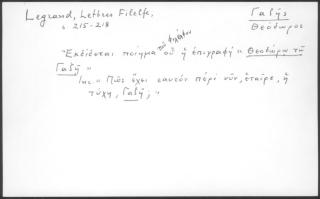 Legrand, Lettres Filelfe,
σ. 215-218
Γαζῆς
Θεόδωρος
Ἐκδίδεται ποίημα τοῦ Φιλέλφου οὗ ἡ ἐπιγραφή "Θεοδώρῳ τῷ
Γαζῇ"
"Πῶς ἔχει σαυτὸν πέρι νῦν, ἑταῖρε, ἡ
τύχη, Γαζῆ; "